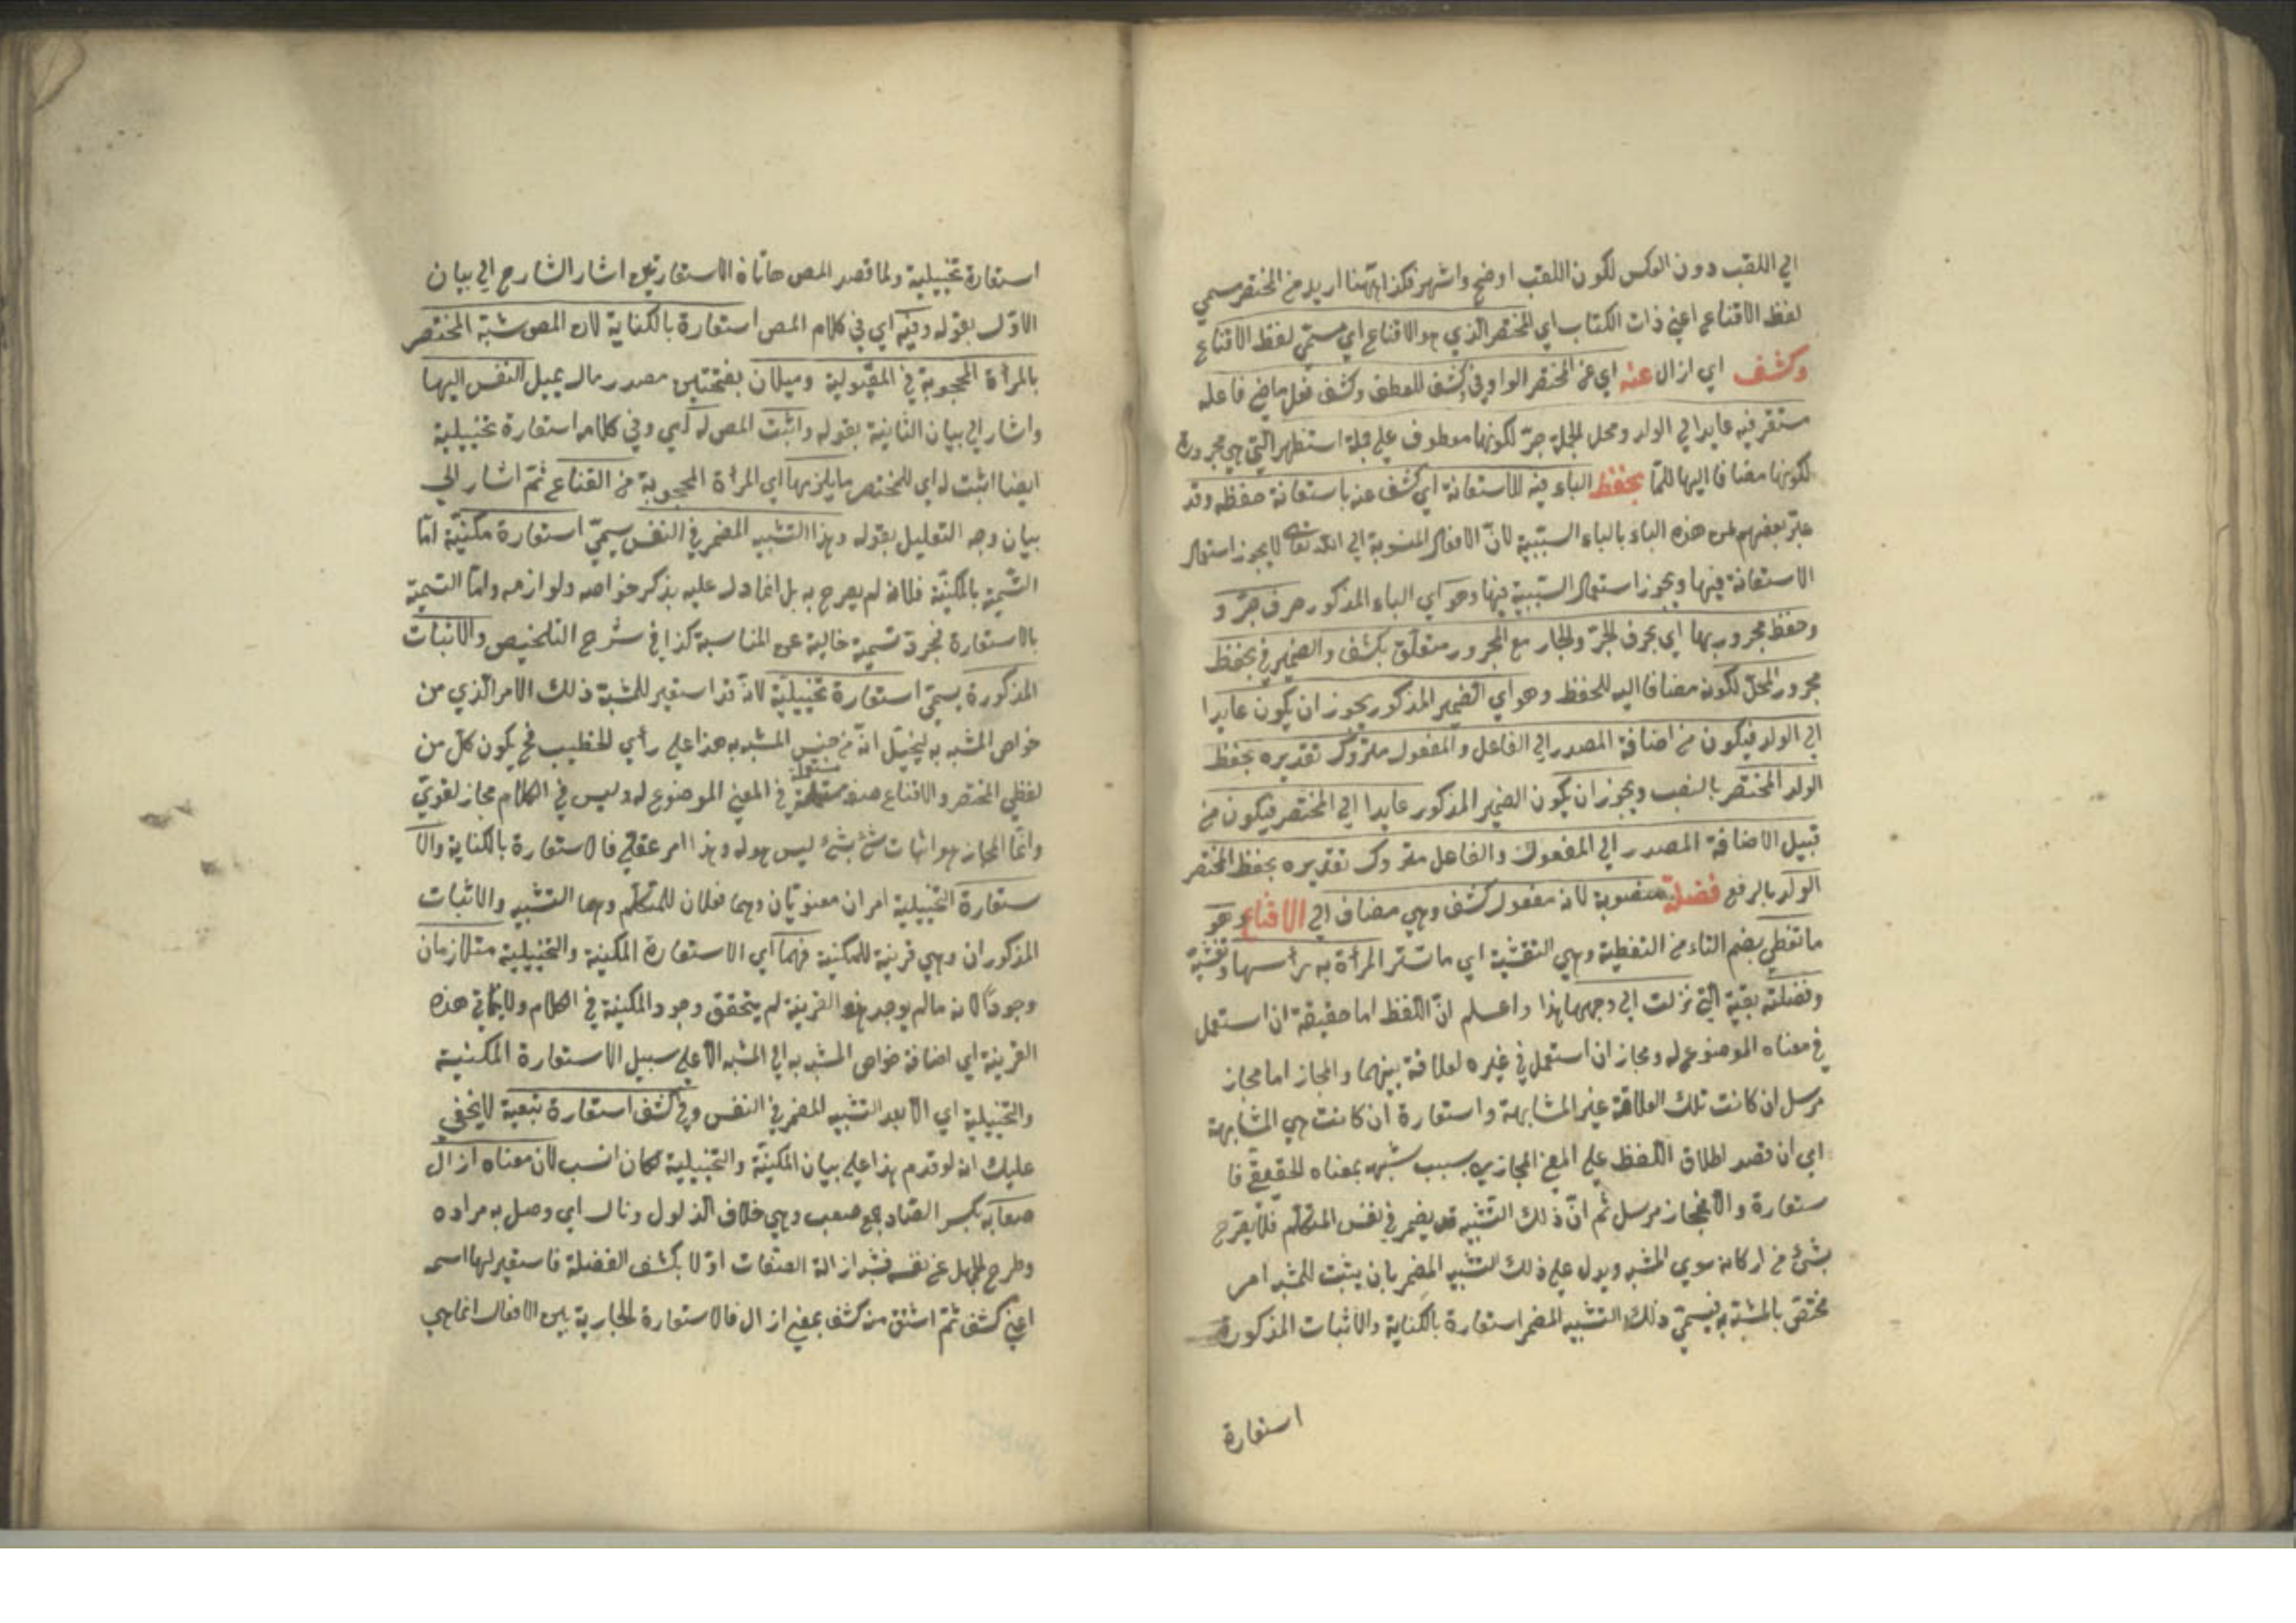 الي اللقب دون العكس لكون اللقب اوضح واشهر فكذا ههنا اريد من المختصر سمي
لفظ الاقناع اعني ذات الكتاب اي المختصر الذي هو الاقناع اي مسمّي لفظ الاقناع
وكشف اي ازال عنه اي عن المختصر الواو في وكشف للعطف وكشف فعل ماضي فاعله
مستتر فيه عايد الي الولد ومحل الجملة جرّ لكونها معطوف علي جملة استظهر التي هي مجرورة
لكونها مضافا اليها للمّا بحفظ الباء فيه للاستعانة اي كشف عنه باستعانة حفظه وقد
عبّر بعضهم عن هذه الباء بالباء السّببية لانّ الافعال المنسوبة الي الله تعالي لا يجوز استعمال
الاستعانة فيها ويجوز استعمال السّببية فيها وهو اي الباء المذكور حرف جرّ و
وحفظ مجرور بها اي بحرف الجرّ والجار مع المجرور متعلّق بكشف والضمير في بحفظ
مجرور المحلّ لكونه مضافا اليه للحفظ وهو اي الضمير المذكور يجوز ان يكون عايدا
الي الولد فيكون من اضافة المصدر الي الفاعل والمفعول متروك تقديره بحفظ
الولد المختصر بالنصب ويجوز ان يكون الضمير المذكور عايدا الي المختصر فيكون من
قبيل الاضافة المصدر الي المفعول والفاعل متروك تقديره بحفظ المختصر
الولد بالرفع فضلة منصوبة لانه مفعول كشف وهي مضاف الي الاقناع وهو
ما تغطي بضم التاء من التغطية وهي التغشية اي ما تستر المرأة به رأسها وتغشية
وفضلته بقية التي نزلت الي وجهها هذا واعلم انّ اللفظ اما حقيقة ان استعمل
في معناه الموضوع له ومجاز ان استعمل في غيره لعلاقة بينهما والمجاز اما مجاز
مرسل ان كانت تلك العلاقة غير المشابهة واستعارة ان كانت هي المشابهة
اي ان قصد اطلاق اللفظ علي المعني المجازي بسبب شبهه بمعناه الحقيقي فا
ستعارة والا فمجاز مرسل ثم انّ ذلك التّشبيه قد يضمر في نفس المتكلّم فلا يصّرح
بشئ من اركانه سوي المشبه ويدل علي ذلك التشبيه المضمر بان يثبت للمشبه امر
مختصّ بالمشبّه به فيسمّي ذلك التشبيه المضمر استعارة بالكناية والاثبات المذكورة
استعارة
استعارة تخييلية ولما قصد المص هاتان الاستعارتين اشار الشارح الي بيان
الاوّل بقوله وفيه اي في كلام المص استعارة بالكناية لان المص شبّه المختصر
بالمرأة المحجوبة في المقبولية وميلان بفتحتين مصدر مال يميل النفس اليها
واشار الي بيان الثانية بقوله واثبت المص له اي وفي كلامه استعارة تخييلية
ايضا اثبت له اي للمختصر ما يلزمها اي المرأة المحجوبة من القناع ثمّ اشار الي
بيان وجه التعليل بقوله وهذا التشبيه المضمر في النفس يسمّي استعارة مكنيّة امّا
التّسمية بالمكنيّة فلانه لم يصرح به بل انما دل عليه بذكر خواصه ولوازمه وامّا التسمية
بالاستعارة فمجرّد تسمية خالية عن المناسبة كذا في شرح التلخيص والاثبات
المذكورة يسمّي استعارة تخييليّة لانّه قد استعير للمشبّه ذلك الامر الّذي من
خواص المشبه به ليخيّل انّه من جنس المشبه به هذا علي رأي الخطيب فح يكون كلّ من
لفظي المختصر والاقناع مستعملة في المعني الموضوع له وليس في الكلام مجاز لغويّ
وانّما المجاز هو اثبات شئ بشئ ليس هو له وهذا امر عقلي فالاستعارة بالكناية والا
ستعارة التخييلية امران معنويّان وهما فعلان للمتكلّم وهما التشبيه والاثبات
المذكوران وهي قرينة للمكنية فهما اي الاستعارة المكنية والتخييلية متلازمان
وجودًا لانه ما لم يوجد هذه القرينة لم يتحقق وجود المكنية في الكلام ولا هذه
القرينة اي اضافة خواص المشبه به الي المشبه الا علي سبيل الاستعارة المكنية
والتخييلية اي الا بعد التشبيه المضمر في النفس وفي كشف استعارة تبعية لا يخفي
عليك انه لو قدم هذا علي بيان المكنيّة والتخييلية لكان انسب لان معناه ازال
صعابه بكسر الصّاد جمع صعب وهي خلاف الذلول ونال اي وصل به مراده
وطرح الجهل عن نفسه فشبه ازالة الصّفات اوّلا بكشف الفضلة فاستعير لها اسمه
اعني كشف ثمّ اشتق منه كشف بمعني ازال فالاستعارة الجارية بين الافعال انما هي